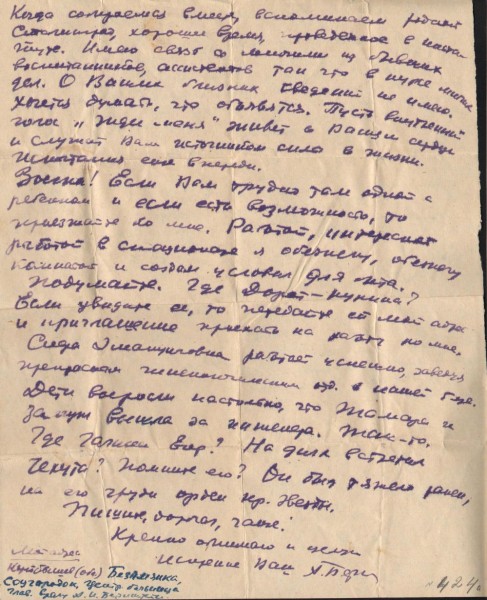 Когда собираемся вместе, вспоминаем родной
Сталинград, хорошее время, проведенное в инсти-
туте. Имею связь со многими из бывших
воспитанников, ассистентов так что в курсе многих
дел. О Ваших близких сведений не имею.
Хочется думать, что объявятся. Пусть внутренний
голос "жди меня" живет в Вашем сердце
и служит Вам источником сил в жизни.
Испытания еще впереди.
Если Вам трудно там одной с
ребенком и если есть возможность, то
приезжайте ко мне. Работой, интересной
работой в стационаре я обеспечу, обеспечу
комнатой и создам условия для
Подумайте. Где
Если увидите ее, то передайте ей мой адрес
и приглашение приехать на работу ко мне.
работает успешно, заведуя
прекрасным гинекологическим отд. в нашей
Дети выросли настолько, что Тамара и
замуж вышла за инженера. Так-то.
Где Галкин Егор? На днях встретил
Помните его? Он был тяжело ранен,
на его груди орден кр. Звезды.
Пишите, дорогая, чаще!
Крепко обнимаю и целую
Искренне Ваш
Безымянка,
Соцгородок, центр. больница
глав. врачу
424